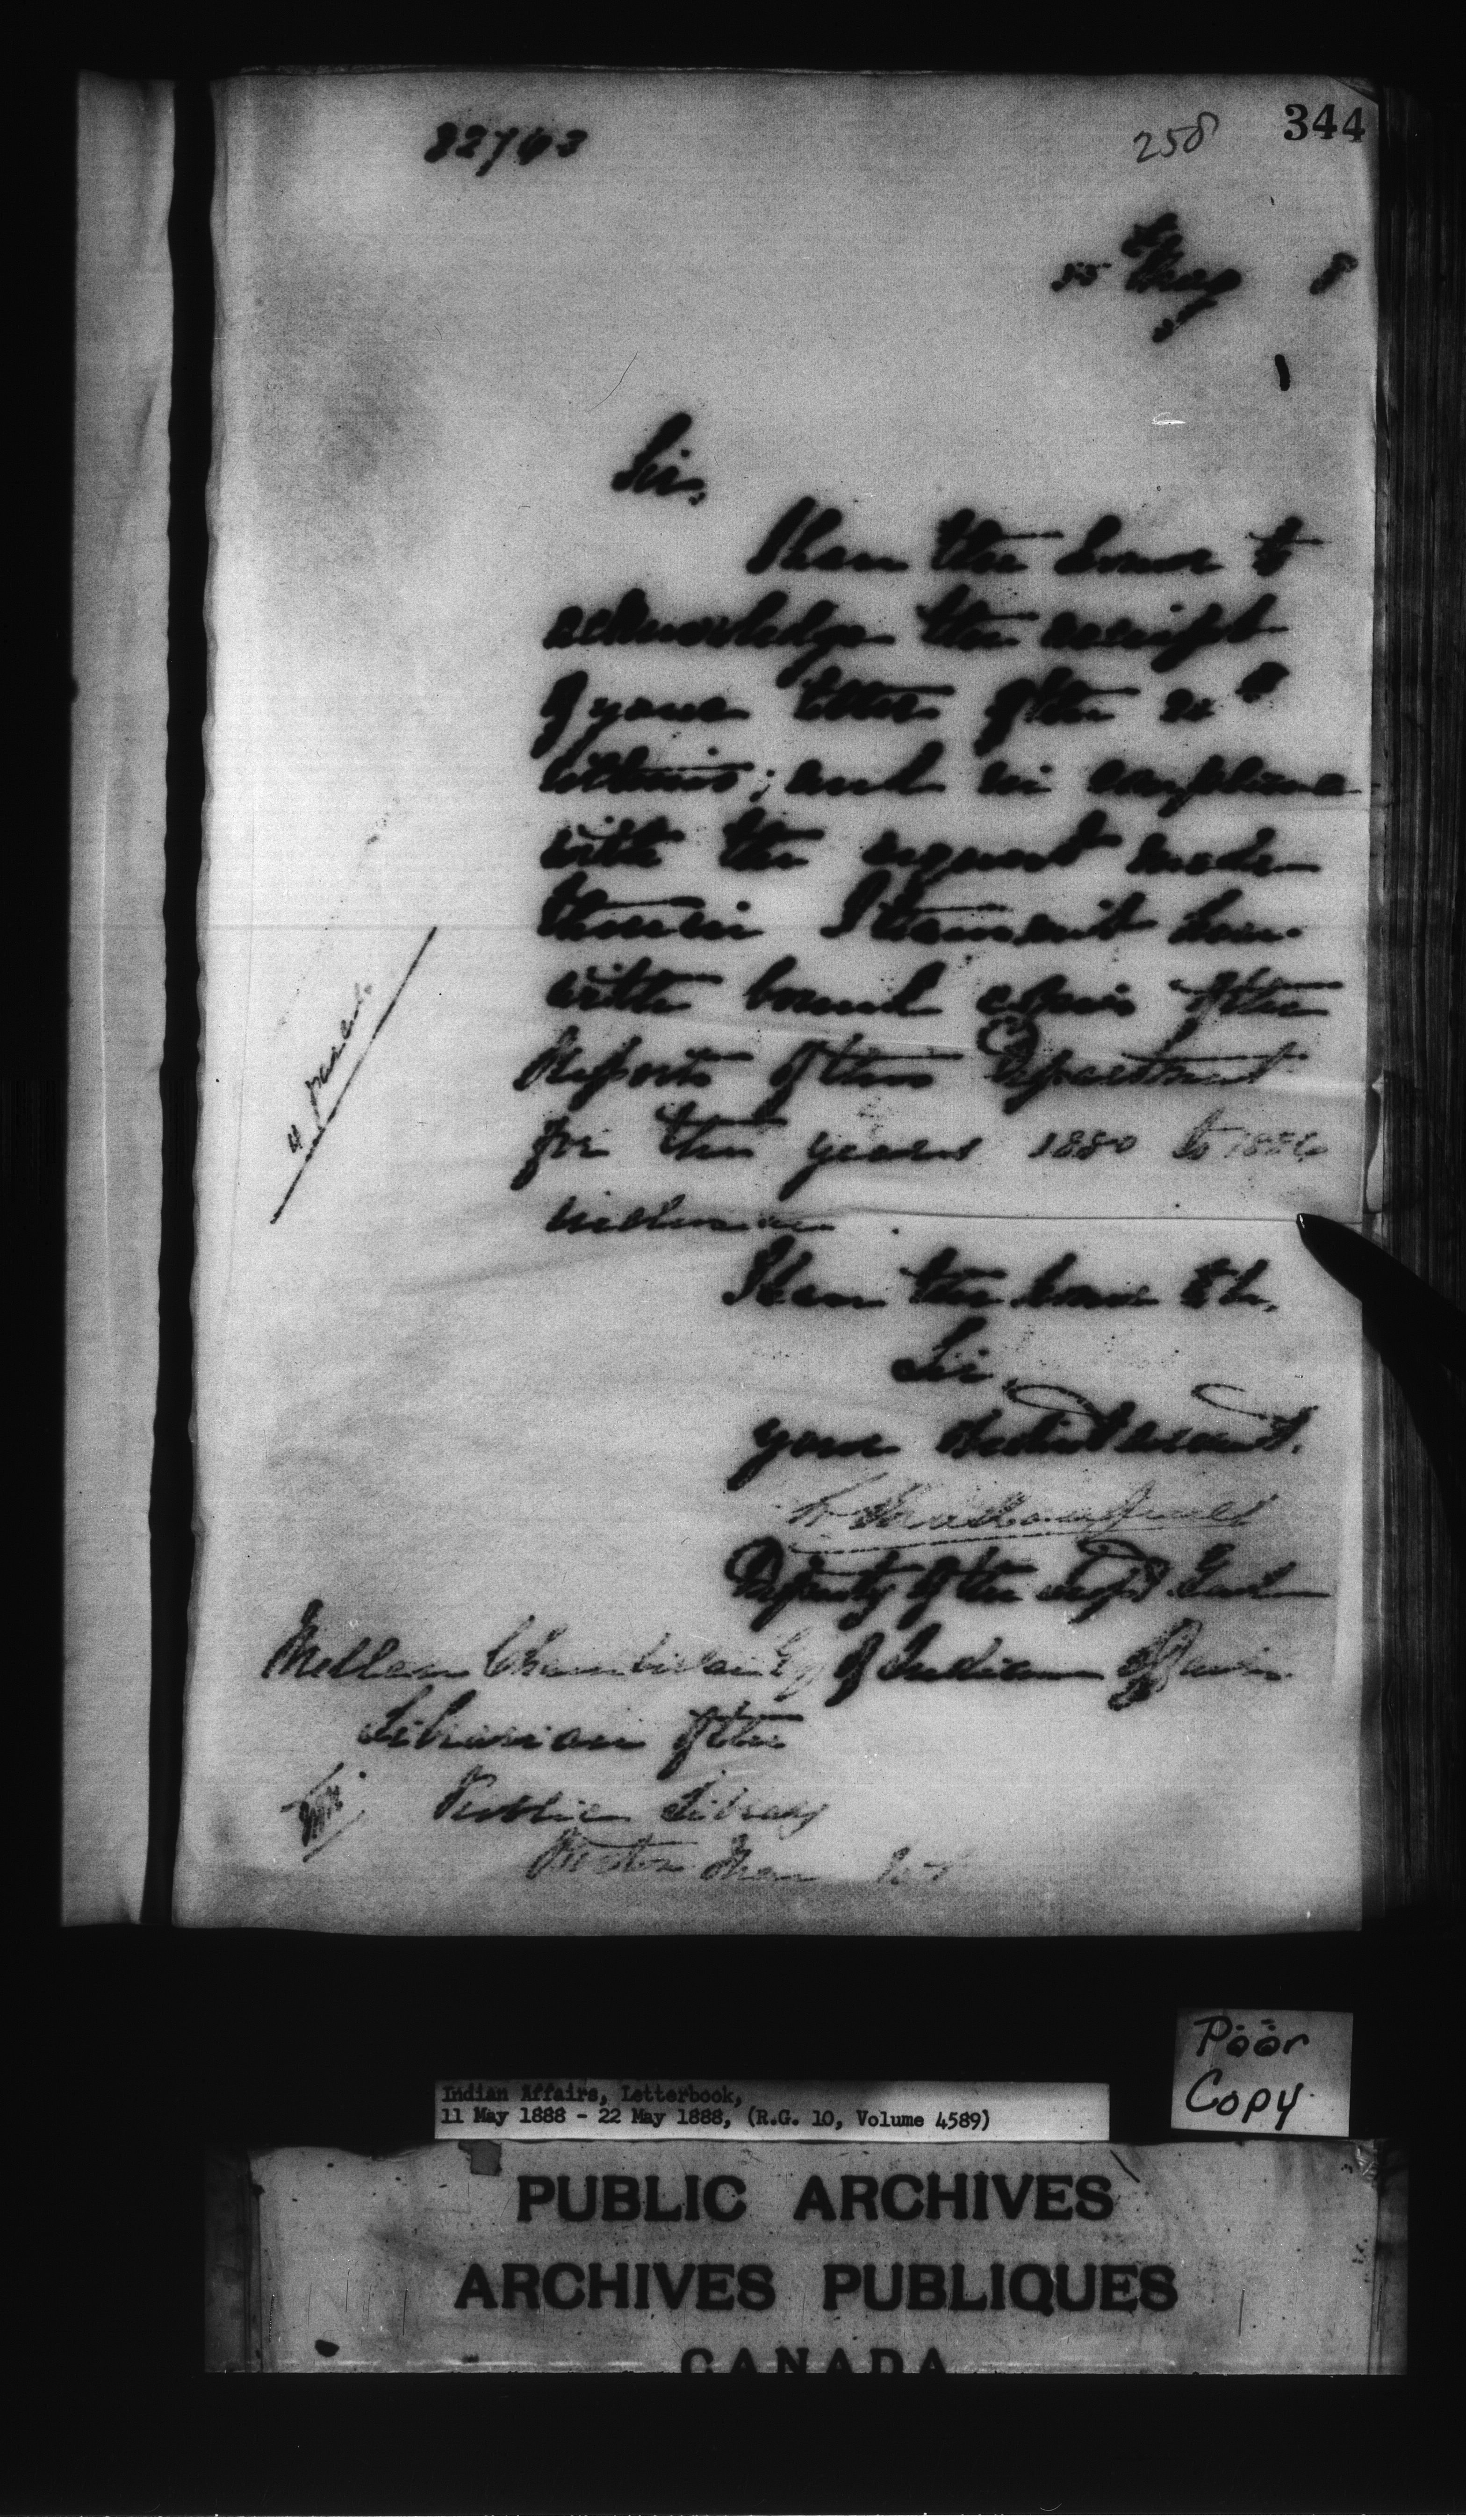 344
258
82743
May 8
Sir,
I have the honor to
acknowledge the receipt
of your letter of the
ultimo; and in compliance
with the request made
therein I transmit here-
with bound copies of the
Reports of this Department
for the years 1880 to 1886
inclusive
I have the honor to be,
Sir,
Your obedient servant.
L. Vankoughnet
Deputy of the Supt. Genl
Mellen Chamberlain Esq of Indian Affairs
Librarian of the
Public Library
Boston Mass
Poor
Copy
Indian Affairs, Letterbook,
11 May 1888 - 22 May 1888, (R.G. 10, Volume 4589)
PUBLIC ARCHIVES
ARCHIVES PUBLIQUES
CANADA